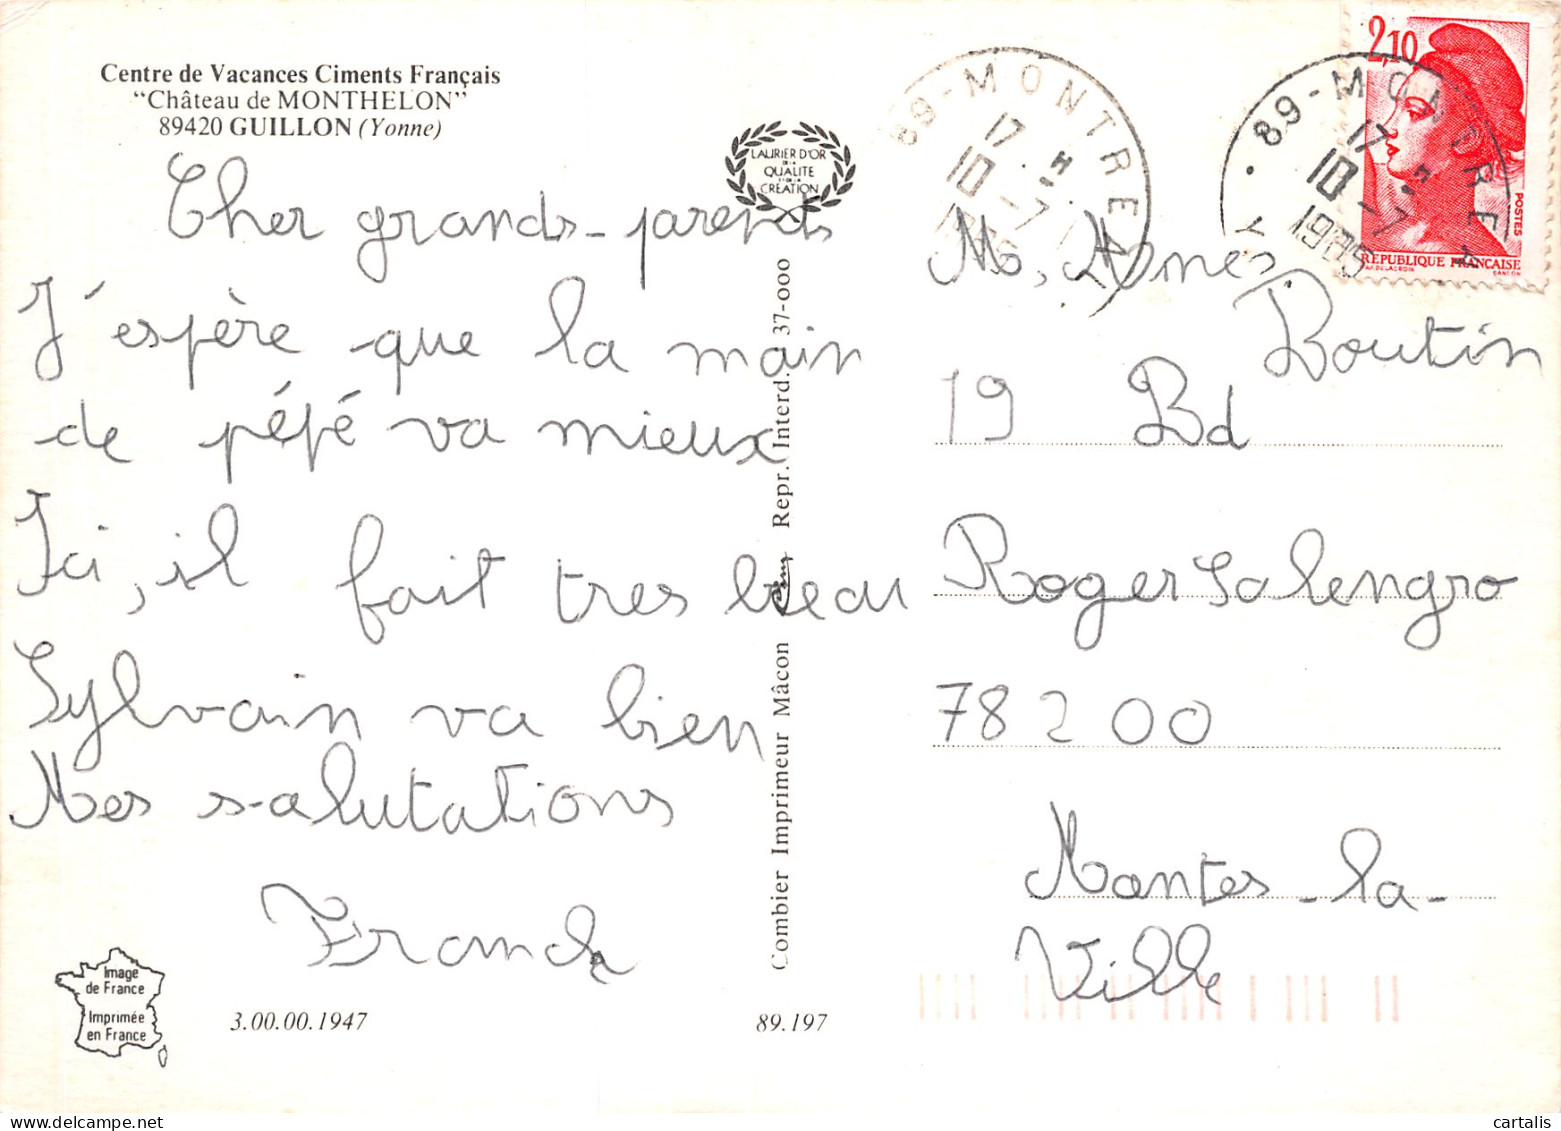 Centre de Vacances Ciments Français
“Château de MONTHELON”
89420 GUILLON (Yonne)
Cher grands-parents
J'espère que la main
de pépé va mieux
Ici, il fait tres beau
Sylvain va bien
Mes salutations
Franck
Image
de France
Imprimée
en France
3.00.00.1947
89.197
LAURIER D'OR
DE LA
QUALITE
ET DE LA
CREATION
Combier Imprimeur Mâcon
Repr. Interd. 37-000
89-MONTREAL
17 H
10 -7
1985
89-MONTREAL
17 H
10 -7
1985
2,10
POSTES
REPUBLIQUE FRANCAISE
M. Mme
Boutin
19 Bd
Roger Salengro
78200
Mantes-la-
Ville
cartalis